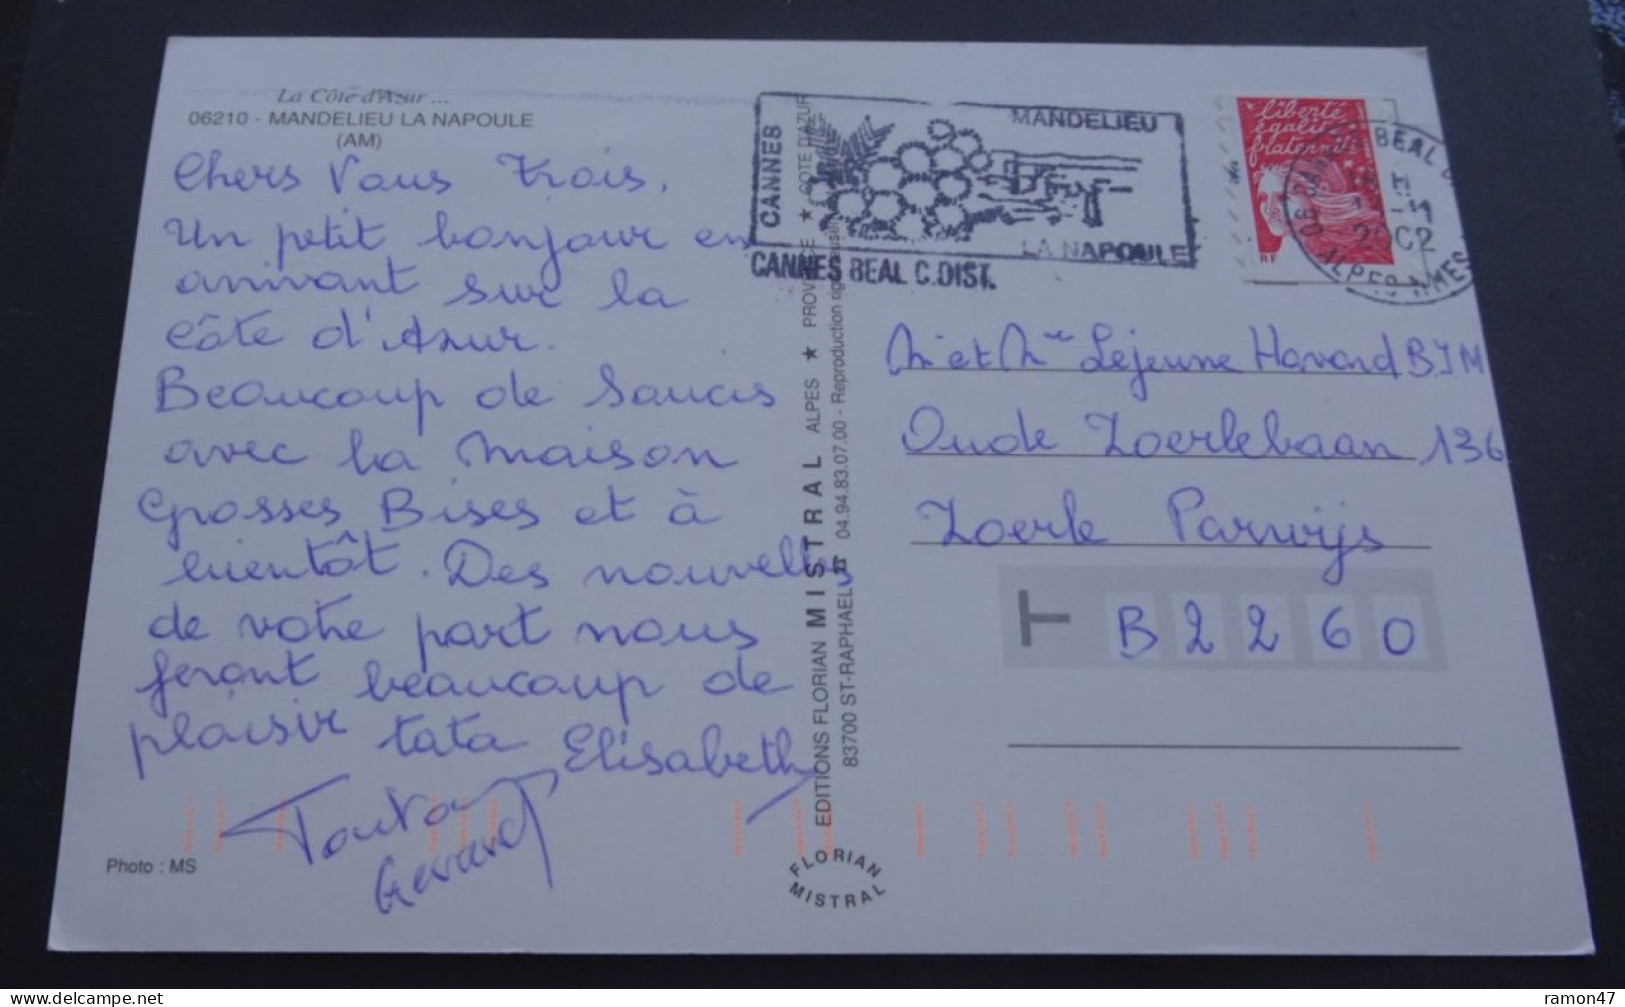 La Côte d'Azur ...
06210 - MANDELIEU LA NAPOULE
(AM)
Chers Vous Trois.
Un petit bonjour en
arrivant sur la
Côte d'Azur.
Beaucoup de Soucis
avec la maison
Grosses Bises et à
bientôt. Des nouvelles
de votre part nous
feront beaucoup de
plaisir tata Elisabeth
Tonton
Gérard
Photo : MS
CANNES
MANDELIEU
LA NAPOULE
CANNES BEAL C.DIST.
liberté
égalité
fraternité
RF
BEAL
2002
ALPES MMES
EDITIONS FLORIAN MISTRAL ALPES ★ PROVENCE ★ COTE D'AZUR
83700 ST-RAPHAEL ☎ 04.94.83.07.00 - Reproduction rigoureusement
FLORIAN
MISTRAL
Mr et Mme Lejeune Havard BJM
Oude Zoerlebaan 136
Zoerle Parwijs
T B 2 2 6 0
ramon47